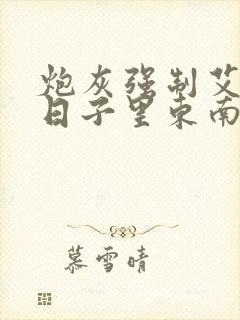 炮灰强制艾
日子里东南
慕雪晴